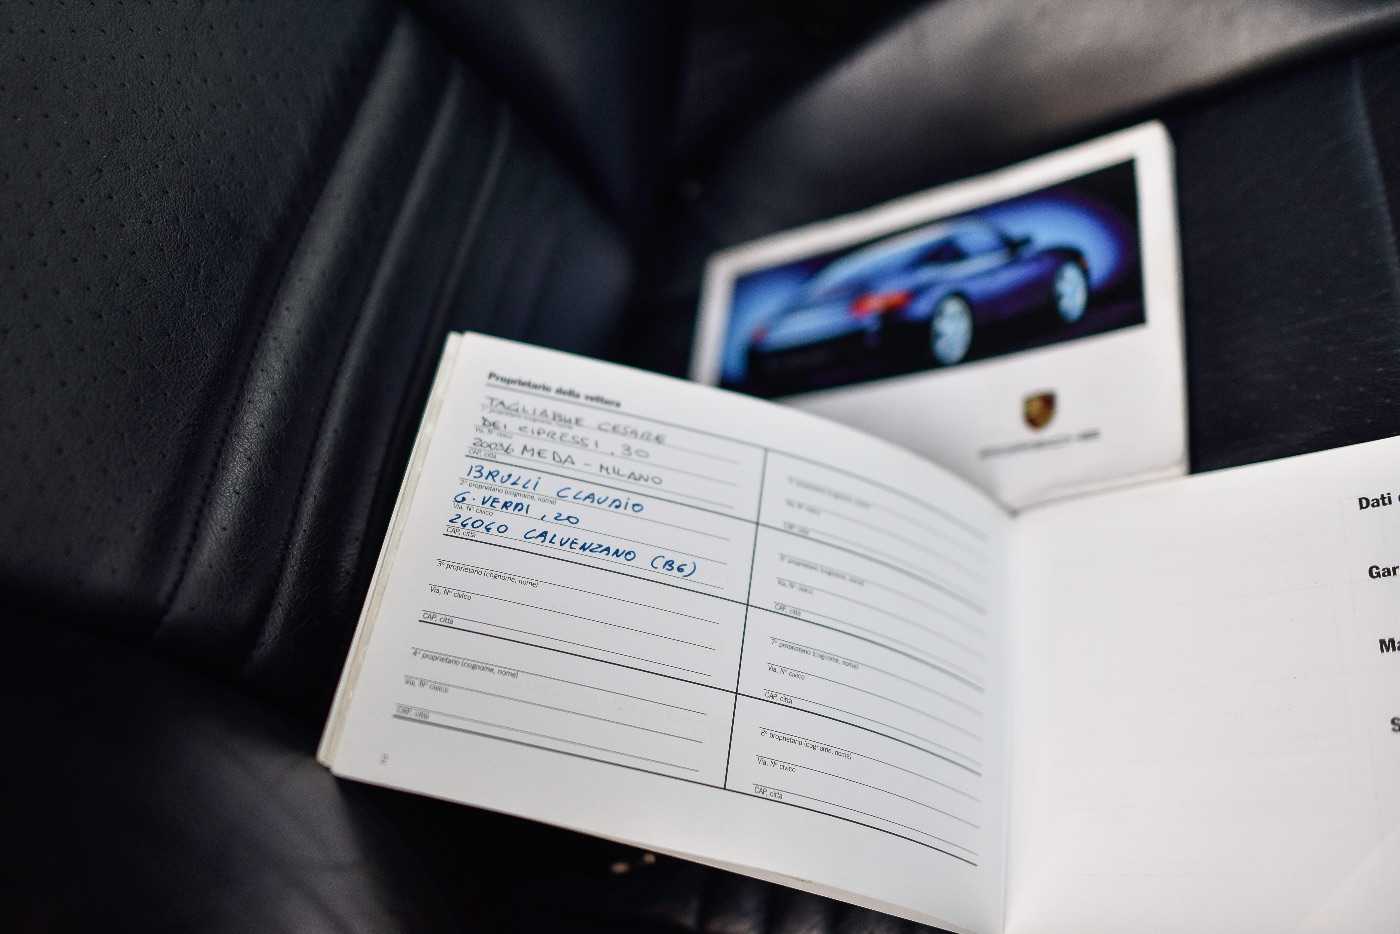 Proprietario della vettura
TAGLIABUE CESARE
1° proprietario (cognome, nome)
DEI CIPRESSI, 30
Via, N° civico
20036 MEDA - MILANO
CAP, città
BRULLI CLAUDIO
2° proprietario (cognome, nome)
G. VERDI, 20
Via, N° civico
24040 CALVENZANO (BG)
CAP, città
3° proprietario (cognome, nome)
Via, N° civico
CAP, città
4° proprietario (cognome, nome)
Via, N° civico
CAP, città
5° proprietario (cognome, nome)
Via, N° civico
CAP, città
6° proprietario (cognome, nome)
Via, N° civico
CAP, città
7° proprietario (cognome, nome)
Via, N° civico
CAP, città
8° proprietario (cognome, nome)
Via, N° civico
CAP, città
Dati
Gar
Ma
S